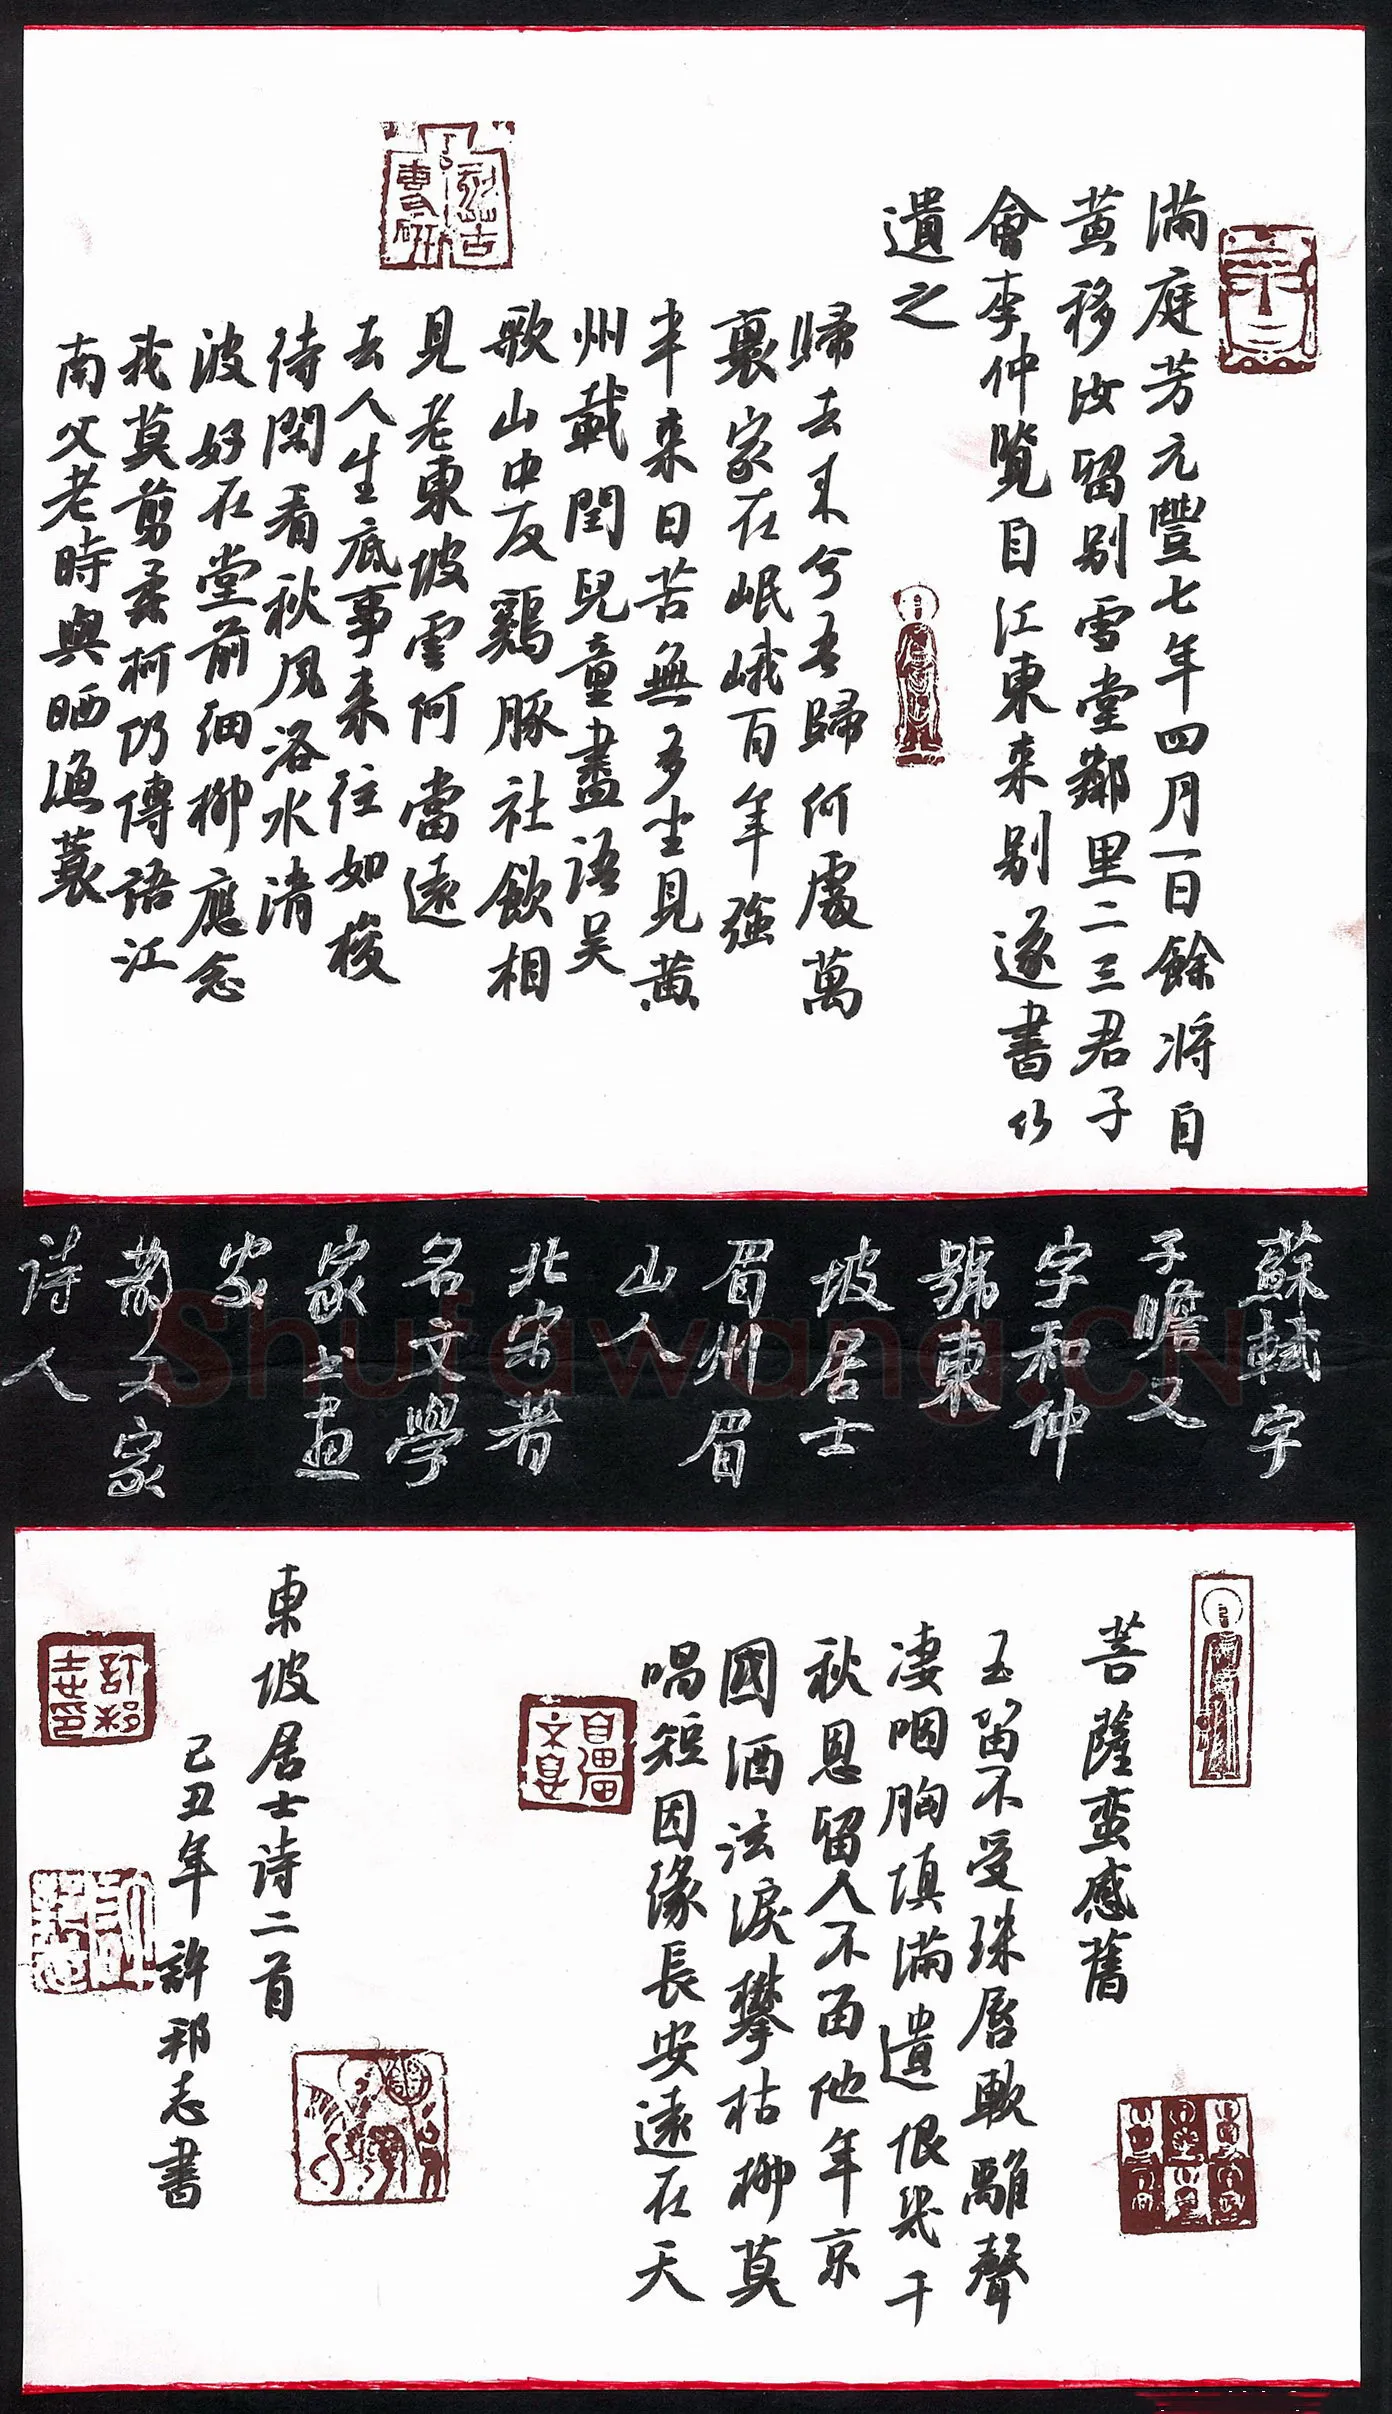 滿庭芳元豐七年四月一日餘將自
黃移汝留别雪堂鄰里二三君子
會李仲覽自江東来别遂書以
遺之
歸去来兮吾歸何處萬
裏家在岷峨百年强
半来日苦無多坐見黄
州載閏兒童盡語吴
歌山中友鷄豚社飲相
見老東坡雲何當遠
去人生底事来往如梭
待閑看秋風洛水清
波好在堂前細柳應念
我莫剪柔柯仍傳語江
南父老時與晒漁蓑
蘇軾字
子瞻又
字和仲
號東
坡居士
眉州眉
山人
北宋著
名文學
家书画
家
散文家
诗人
菩薩蛮感舊
玉笛不受珠唇軟離聲
凄咽胸填满遺恨幾千
秋恩留人不留他年京
國酒泫淚攀枯柳莫
唱短因缘長安遠在天
東坡居士诗二首
己丑年 許邦志書
Shufawang.CN